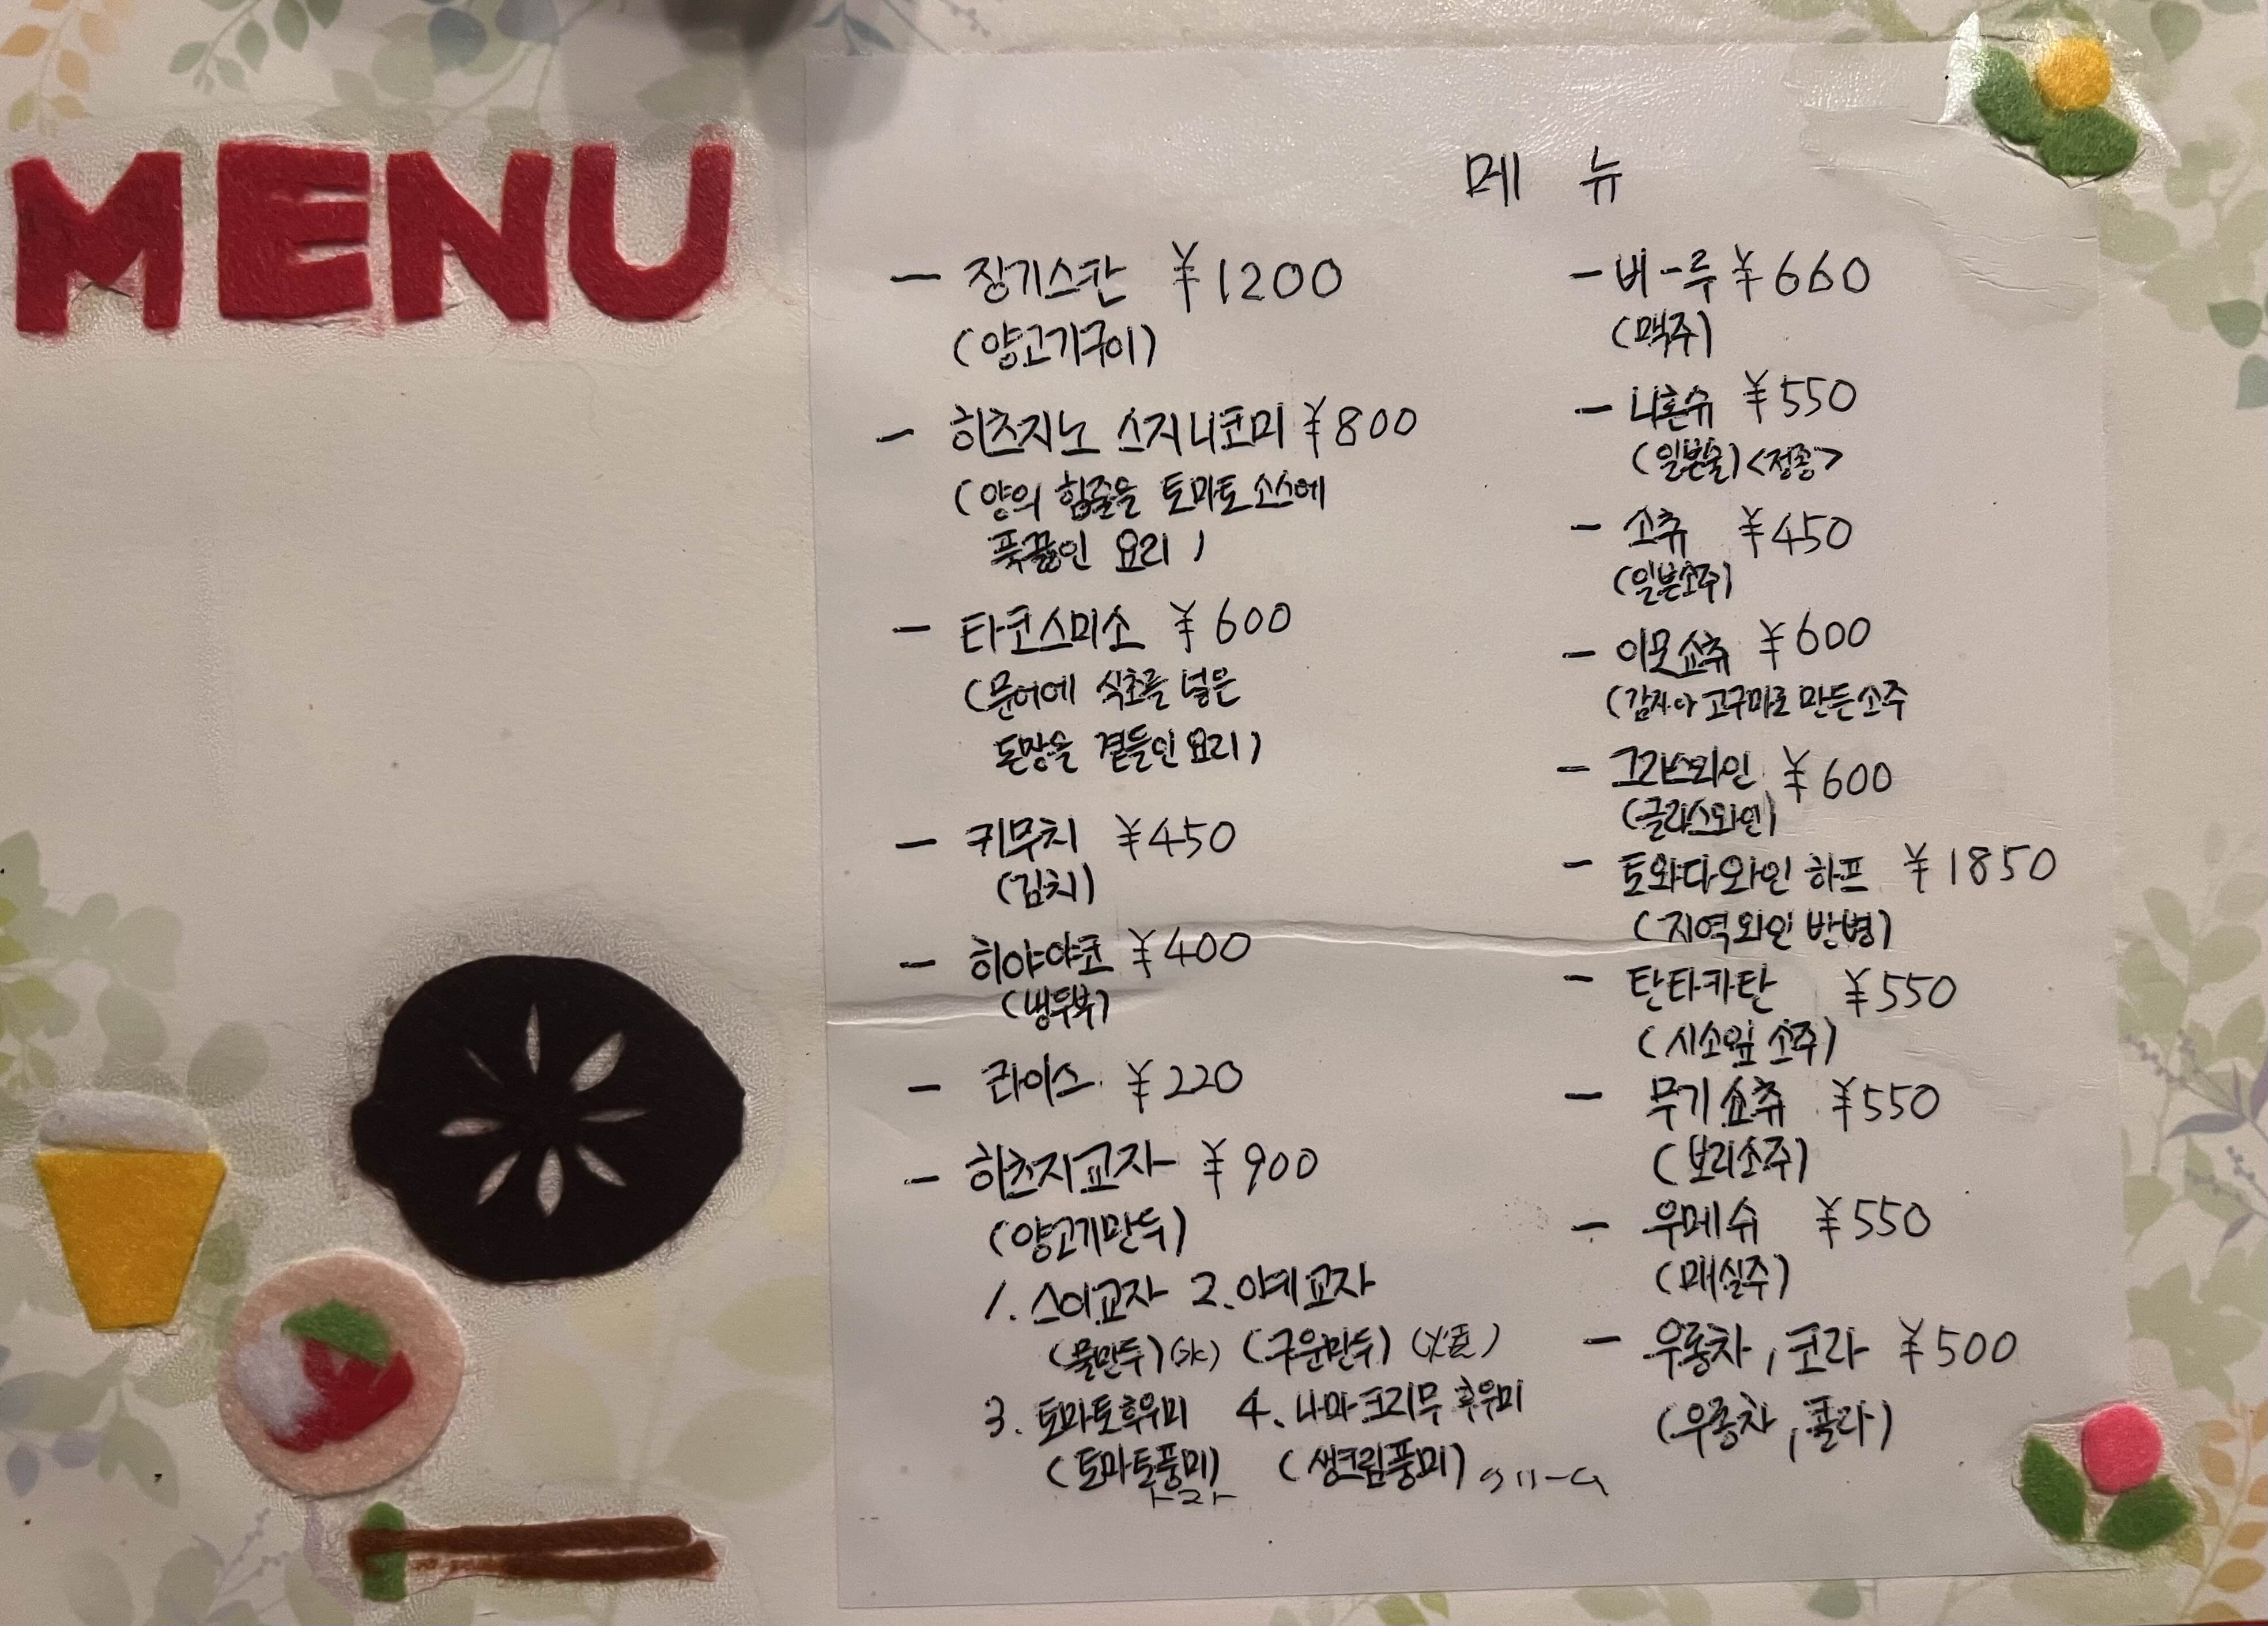 MENU
메 뉴
- 징기스칸 ¥1200
(양고기구이)
- 히츠지노 스지니코미 ¥800
(양의 힘줄을 토마토소스에
푹끓인 요리)
- 타코스미소 ¥600
(문어에 식초를 넣은
된장을 곁들인요리)
- 키무치 ¥450
(김치)
- 히야야코 ¥400
(냉두부)
- 라이스 ¥220
- 히츠지교자 ¥900
(양고기만두)
1. 스이교자 2. 야께교자
(물만두)(水) (구운만두)
3. 토마토후우미 4. 나마크리무 후우미
(토마토풍미) (생크림풍미)
- 비-루 ¥660
(맥주)
- 니혼슈 ¥550
(일본술)<정종>
- 소츄 ¥450
(일본소주)
- 이모쇼츄 ¥600
(감자아 고구미로 만든소주
- 그라스와인 ¥600
(글라스와인)
- 토와다와인 하프 ¥1850
(지역와인 반병)
- 탄타카탄 ¥550
(시소잎 소주)
- 무기쇼츄 ¥550
(보리소주)
- 우메슈 ¥550
(매실주)
- 우롱차, 코라 ¥500
(우롱차, 콜라)